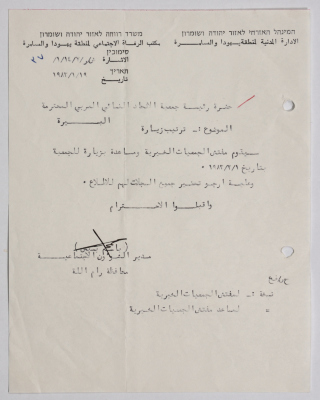 המינהל האזרחי לאזור יהודה ושומרון
الادارة المدنية لمنطقة يهودا والسامرة
משרד רווחה לאזור יהודה ושומרון
مكتب الرفاه الاجتماعي لمنطقة يهودا والسامرة
סימוכין
الاشارة
תאריך
تاريخ ١٩٨٢/١/١٩
حضرة رئيسة جمعية الاتحاد النسائي العربي المحترمة
البيرة
الموضوع :- ترتيب زيارة
سيقوم مفتش الجمعيات الخيرية ومساعده بزيارة للجمعية
بتاريخ ١٩٨٢/٢/٩ .
وعليه ارجو تحضير جميع السجلات لهم للاطلاع .
واقبلوا الاحترام
مدير الشؤون الاجتماعية
محافظة رام الله
نسخة :- لمفتش الجمعيات الخيرية
" لمساعد مفتش الجمعيات الخيرية